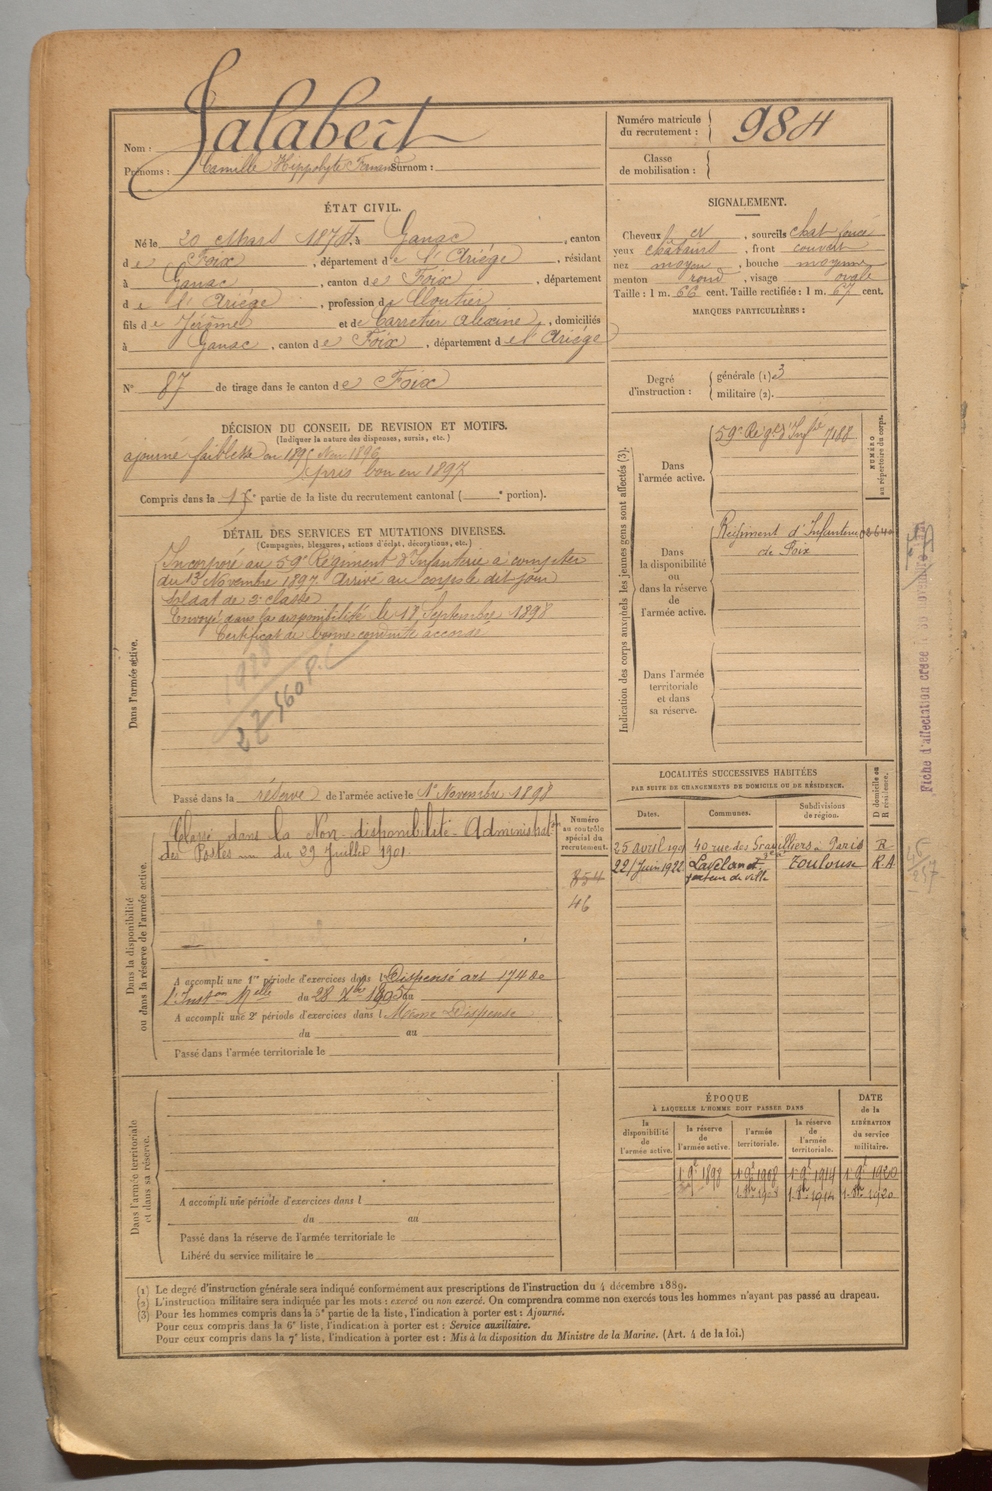 Nom : Jalabert
Prénoms : Camille Hippolyte Surnom :
Numéro matricule du recrutement : 984
Classe de mobilisation :
ÉTAT CIVIL.
Né le 20 Mars 1874, à Ganac, canton
de Foix, département de l'Ariège, résidant
à Ganac, canton de Foix, département
de l'Ariège, profession de Cloutier
fils de Jérôme et de Carretier Alexine, domiciliés
à Ganac, canton de Foix, département de l'Ariège
N° 87 de tirage dans le canton de Foix
SIGNALEMENT.
Cheveux et, sourcils chat foncé
yeux châtains, front couvert
nez moyen, bouche moyenne
menton rond, visage ovale
Taille : 1 m. 66 cent. Taille rectifiée : 1 m. 67 cent.
MARQUES PARTICULIÈRES :
Degré d'instruction : générale (1) 3
militaire (2).
DÉCISION DU CONSEIL DE REVISION ET MOTIFS.
(Indiquer la nature des dispenses, sursis, etc.)
ajourné faiblesse en 1895 1896
pris bon en 1897
Compris dans la 1e partie de la liste du recrutement cantonal ( e portion).
DÉTAIL DES SERVICES ET MUTATIONS DIVERSES.
(Campagnes, blessures, actions d'éclat, décorations, etc.)
Dans l'armée active.
Incorporé au 59e Régiment d'Infanterie à compter
du 13 Novembre 1897 Arrivé au corps le dit jour
soldat de 2e classe
Envoyé dans la disponibilité le 18 Septembre 1898
Certificat de bonne conduite accordé
Passé dans la réserve de l'armée active le 1er Novembre 1898
Indication des corps auxquels les jeunes gens sont affectés (3).
NUMÉRO au répertoire du corps.
Dans l'armée active.
59e Régt d'Infie 7188
Dans la disponibilité ou dans la réserve de l'armée active.
Régiment d'Infanterie
de Foix
Dans l'armée territoriale et dans sa réserve.
Fiche d'affectation créée
Dans la disponibilité ou dans la réserve de l'armée active.
Classé dans la Non-disponibilité - Administ.on
des Postes du 29 Juillet 1901
Numéro au contrôle spécial du recrutement.
854
46
A accompli une 1re période d'exercices dans l Dispensé art 174 de
l'Inston Melle du 28 Xbre 1895 au
A accompli une 2e période d'exercices dans l Même Dispense
du au
Passé dans l'armée territoriale le
LOCALITÉS SUCCESSIVES HABITÉES
PAR SUITE DE CHANGEMENTS DE DOMICILE OU DE RÉSIDENCE.
Dates. Communes. Subdivisions de région. D domicile ou R résidence.
25 avril 1901 40 rue des Gravilliers Paris R
22 Juin 1922 Lavelanet Toulouse R.A
facteur de ville
Dans l'armée territoriale et dans sa réserve.
A accompli une période d'exercices dans l
du au
Passé dans la réserve de l'armée territoriale le
Libéré du service militaire le
ÉPOQUE
À LAQUELLE L'HOMME DOIT PASSER DANS
la disponibilité de l'armée active.
la réserve de l'armée active
l'armée territoriale.
la réserve de l'armée territoriale.
DATE de la LIBÉRATION du service militaire.
1 9e 1898 1 9e 1908 1 9e 1914 1 9e 1920
1 8bre 1908 1 8bre 1914 1 8bre 1920
(1) Le degré d'instruction générale sera indiqué conformément aux prescriptions de l'instruction du 4 décembre 1889.
(2) L'instruction militaire sera indiquée par les mots : exercé ou non exercé. On comprendra comme non exercés tous les hommes n'ayant pas passé au drapeau.
(3) Pour les hommes compris dans la 5e partie de la liste, l'indication à porter est : Ajourné.
Pour ceux compris dans la 6e liste, l'indication à porter est : Service auxiliaire.
Pour ceux compris dans la 7e liste, l'indication à porter est : Mis à la disposition du Ministre de la Marine. (Art. 4 de la loi.)